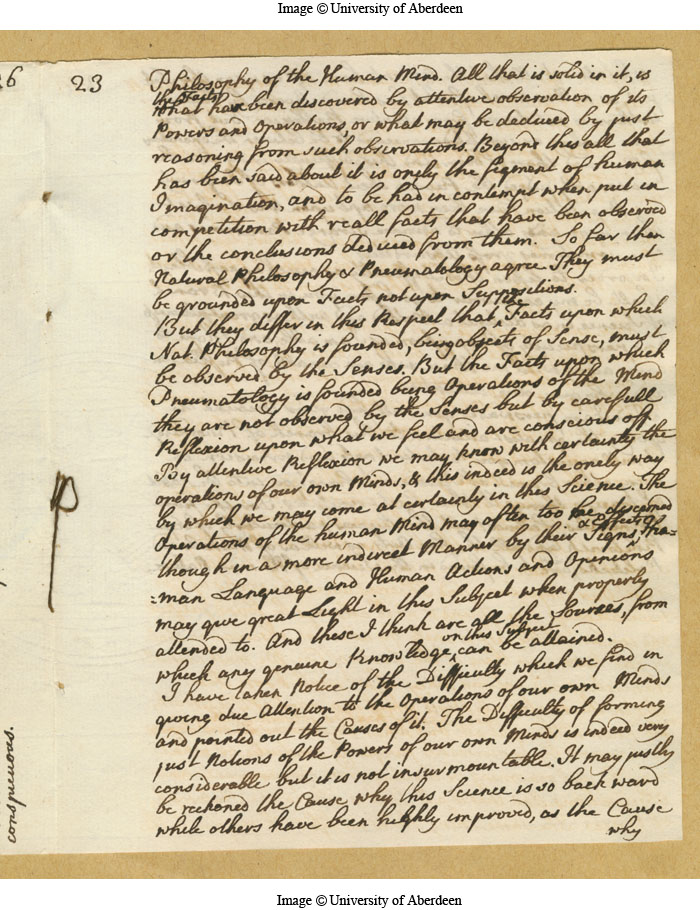 Image © University of Aberdeen
26
23
Philosophy of the Human Mind. All that is solid in it, is
the Facts
what have been discovered by attentive observation of its
Powers and Operations, or what may be deduced by just
reasoning from such observations. Beyond this all that
has been said about it is onely the figment of human
Imagination, and to be had in contempt when put in
competition with reall facts that have been observed
or the conclusions deduced from them. So far then
Natural Philosophy & Pneumatology agree They must
be grounded upon Facts not upon Suppositions.
But they differ in this Respect that the Facts upon which
Nat. Philosophy is founded, being objects of Sense, must
be observed by the Senses. But the Facts upon which
Pneumatology is founded being Operations of the Mind
they are not observed by the Senses but by carefull
Reflexion upon what we feel and are conscious off
By attentive Reflexion we may know with certainty the
operations of our own Minds, & this indeed is the onely way
by which we may come at certainty in this Science. The
Operations of the human Mind may often too be discerned
& Effects
though in a more indirect Manner by their Signs, Hu=
=man Language and Human Actions and Opinions
may give great Light in this Subject when properly
attended to. And these I think are all the Sources, from
on this Subject
which any genuine Knowledge, can be attained.
I have taken Notice of the Difficulty which we find in
giving due Attention to the Operations of our own Minds
and pointed out the Causes of it. The Difficulty of forming
just Notions of the Powers of our own Minds is indeed very
considerable but it is not insurmountable. It may justly
be reckoned the Cause why this Science is so backward
while others have been highly improved, as the Cause
why
conspicuous.
Image © University of Aberdeen